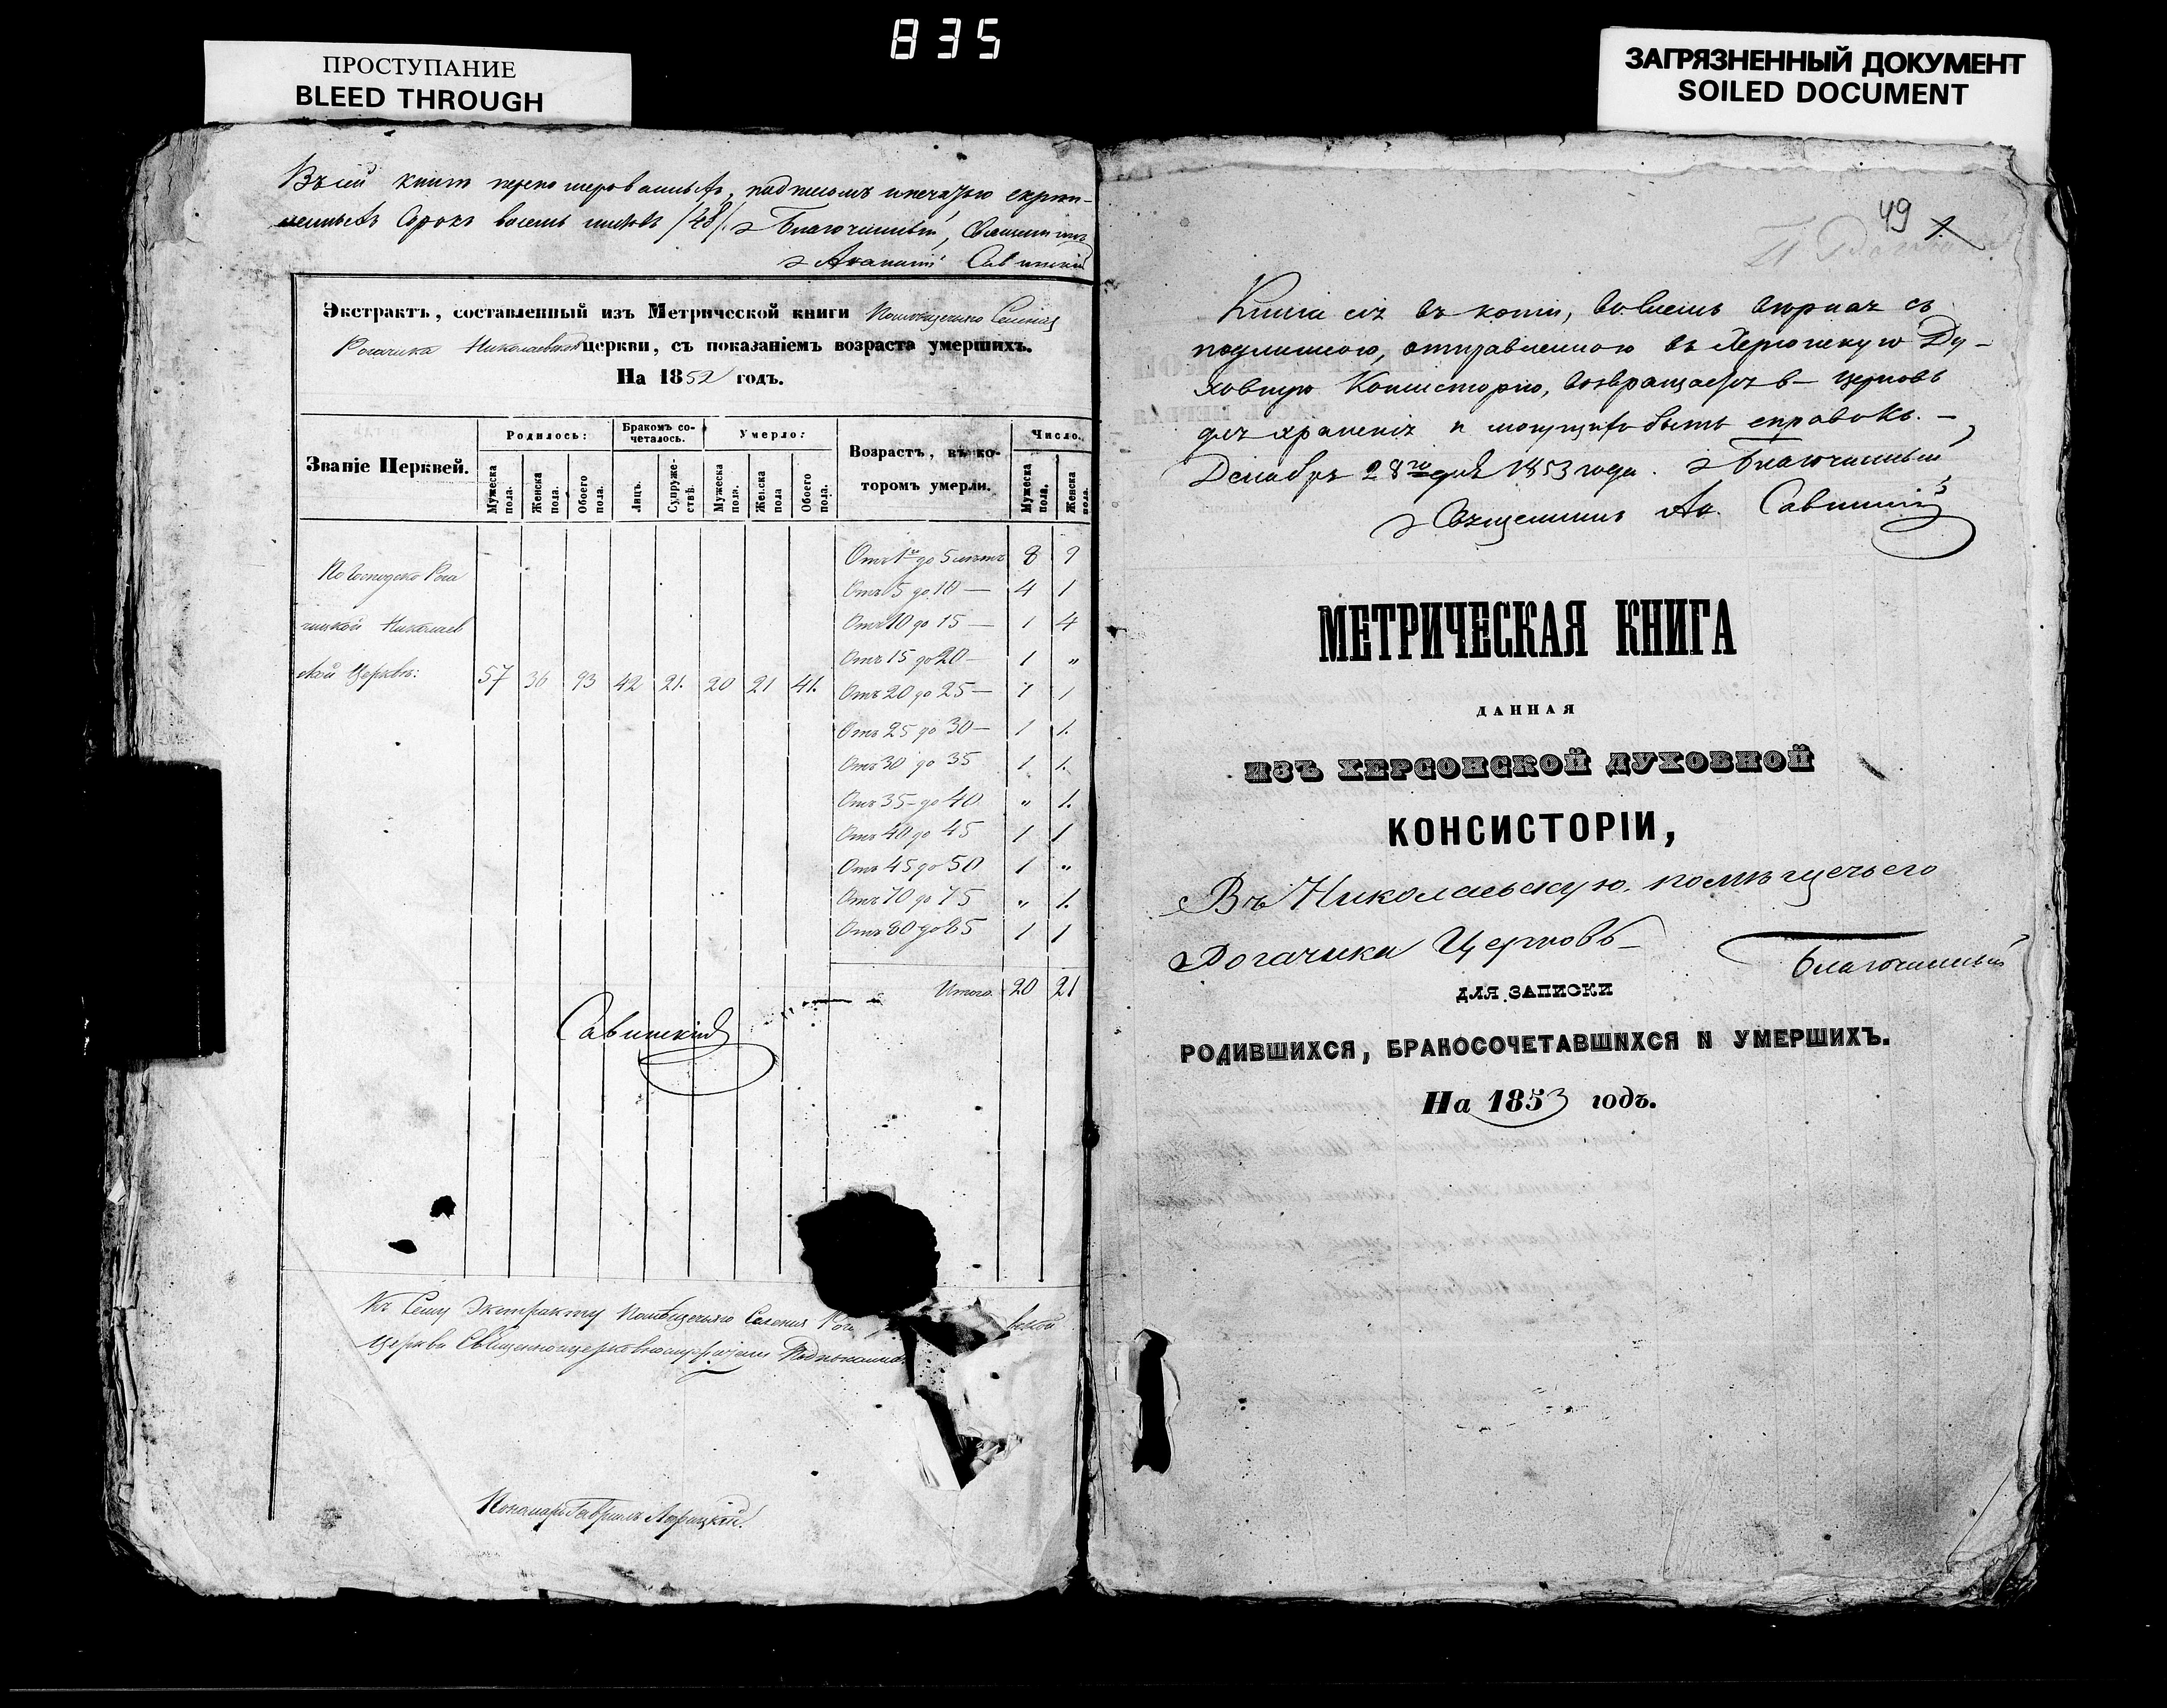 835
ПРОСТУПАНИЕ
BLEED THROUGH
ЗАГРЯЗНЕННЫЙ ДОКУМЕНТ
SOILED DOCUMENT
Въ сей книгѣ перенумерованныхъ, подписомъ и печатью скрѣп-
ленныхъ сорокъ восемь листовъ /48/. Благочинный, Священникъ
Савинскій
Экстрактъ, составленный изъ Метрической книги Помѣщичьяго Селенія
Рогачика Николаевской церкви, съ показаніемъ возраста умершихъ.
На 1852 годъ.
Званіе Церквей.
Родилось:
Бракомъ со-
четалось.
Умерло:
Возрастъ, въ ко-
торомъ умерли.
Число.
Мужеска пола.
Женска пола.
Обоего пола.
Лицъ.
Супруже-
ствъ.
Мужеска пола.
Женска пола.
Обоего пола.
Мужеска пола.
Женска пола.
Николаев
ской Церкви: 57 36 93 42 21. 20 21 41.
Отъ 1го до 5 лѣтъ 8 9
Отъ 5 до 10 — 4 1
Отъ 10 до 15 — 1 4
Отъ 15 до 20 — 1 "
Отъ 20 до 25 — 1 1
Отъ 25 до 30 — 1 1.
Отъ 30 до 35 1 1.
Отъ 35 до 40 " 1.
Отъ 40 до 45 1 1
Отъ 45 до 50 1 "
Отъ 70 до 75 " 1.
Отъ 80 до 85 1 1
Итого. 20 21
Савинскій
Къ сему Экстракту Помѣщичьяго Селенія
Церкви
Пономарь Гавріилъ
49
1.
Книга сія въ копіи, во всемъ вѣрная съ
подлинною, отправленною въ Херсонскую Ду-
ховную Консисторію, возвращается въ церковь
для храненія и могущихъ быть справокъ. —
Декабря 28го дня 1853 года. Благочинный
Священникъ Ак. Савинскій
МЕТРИЧЕСКАЯ КНИГА
ДАННАЯ
ИЗЪ ХЕРСОНСКОЙ ДУХОВНОЙ
КОНСИСТОРІИ,
Въ Николаевскую, помѣщичьего
Рогачика Церковь
Благочинный
ДЛЯ ЗАПИСКИ
РОДИВШИХСЯ, БРАКОСОЧЕТАВШИХСЯ И УМЕРШИХЪ.
На 1853 годъ.